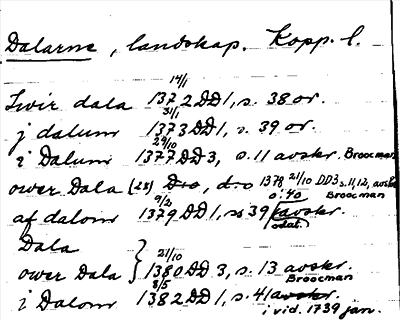 Dalarne, landskap. Kopp. l.
14/1
Iwir dala 1372 DD 1, s. 38 or.
31/1
j dalum 1373 DD 1, s. 39 or.
29/10
i Dalum 1377 DD 3, s. 11 avskr. Broocman
ower Dala (28) D:o, d:o 1378 21/10 DD3 s. 11, 12, avskr
o. 40 Broocman
9/2
af dalom 1379 DD 1, s. 39 avskr.
odat.
Dala
21/10
ower Dala } 1380 DD 3, s. 13 avskr.
Broocman
8/5
i Dalom 1382 DD 1, s. 41 avskr.
i vid. 1739 jan.